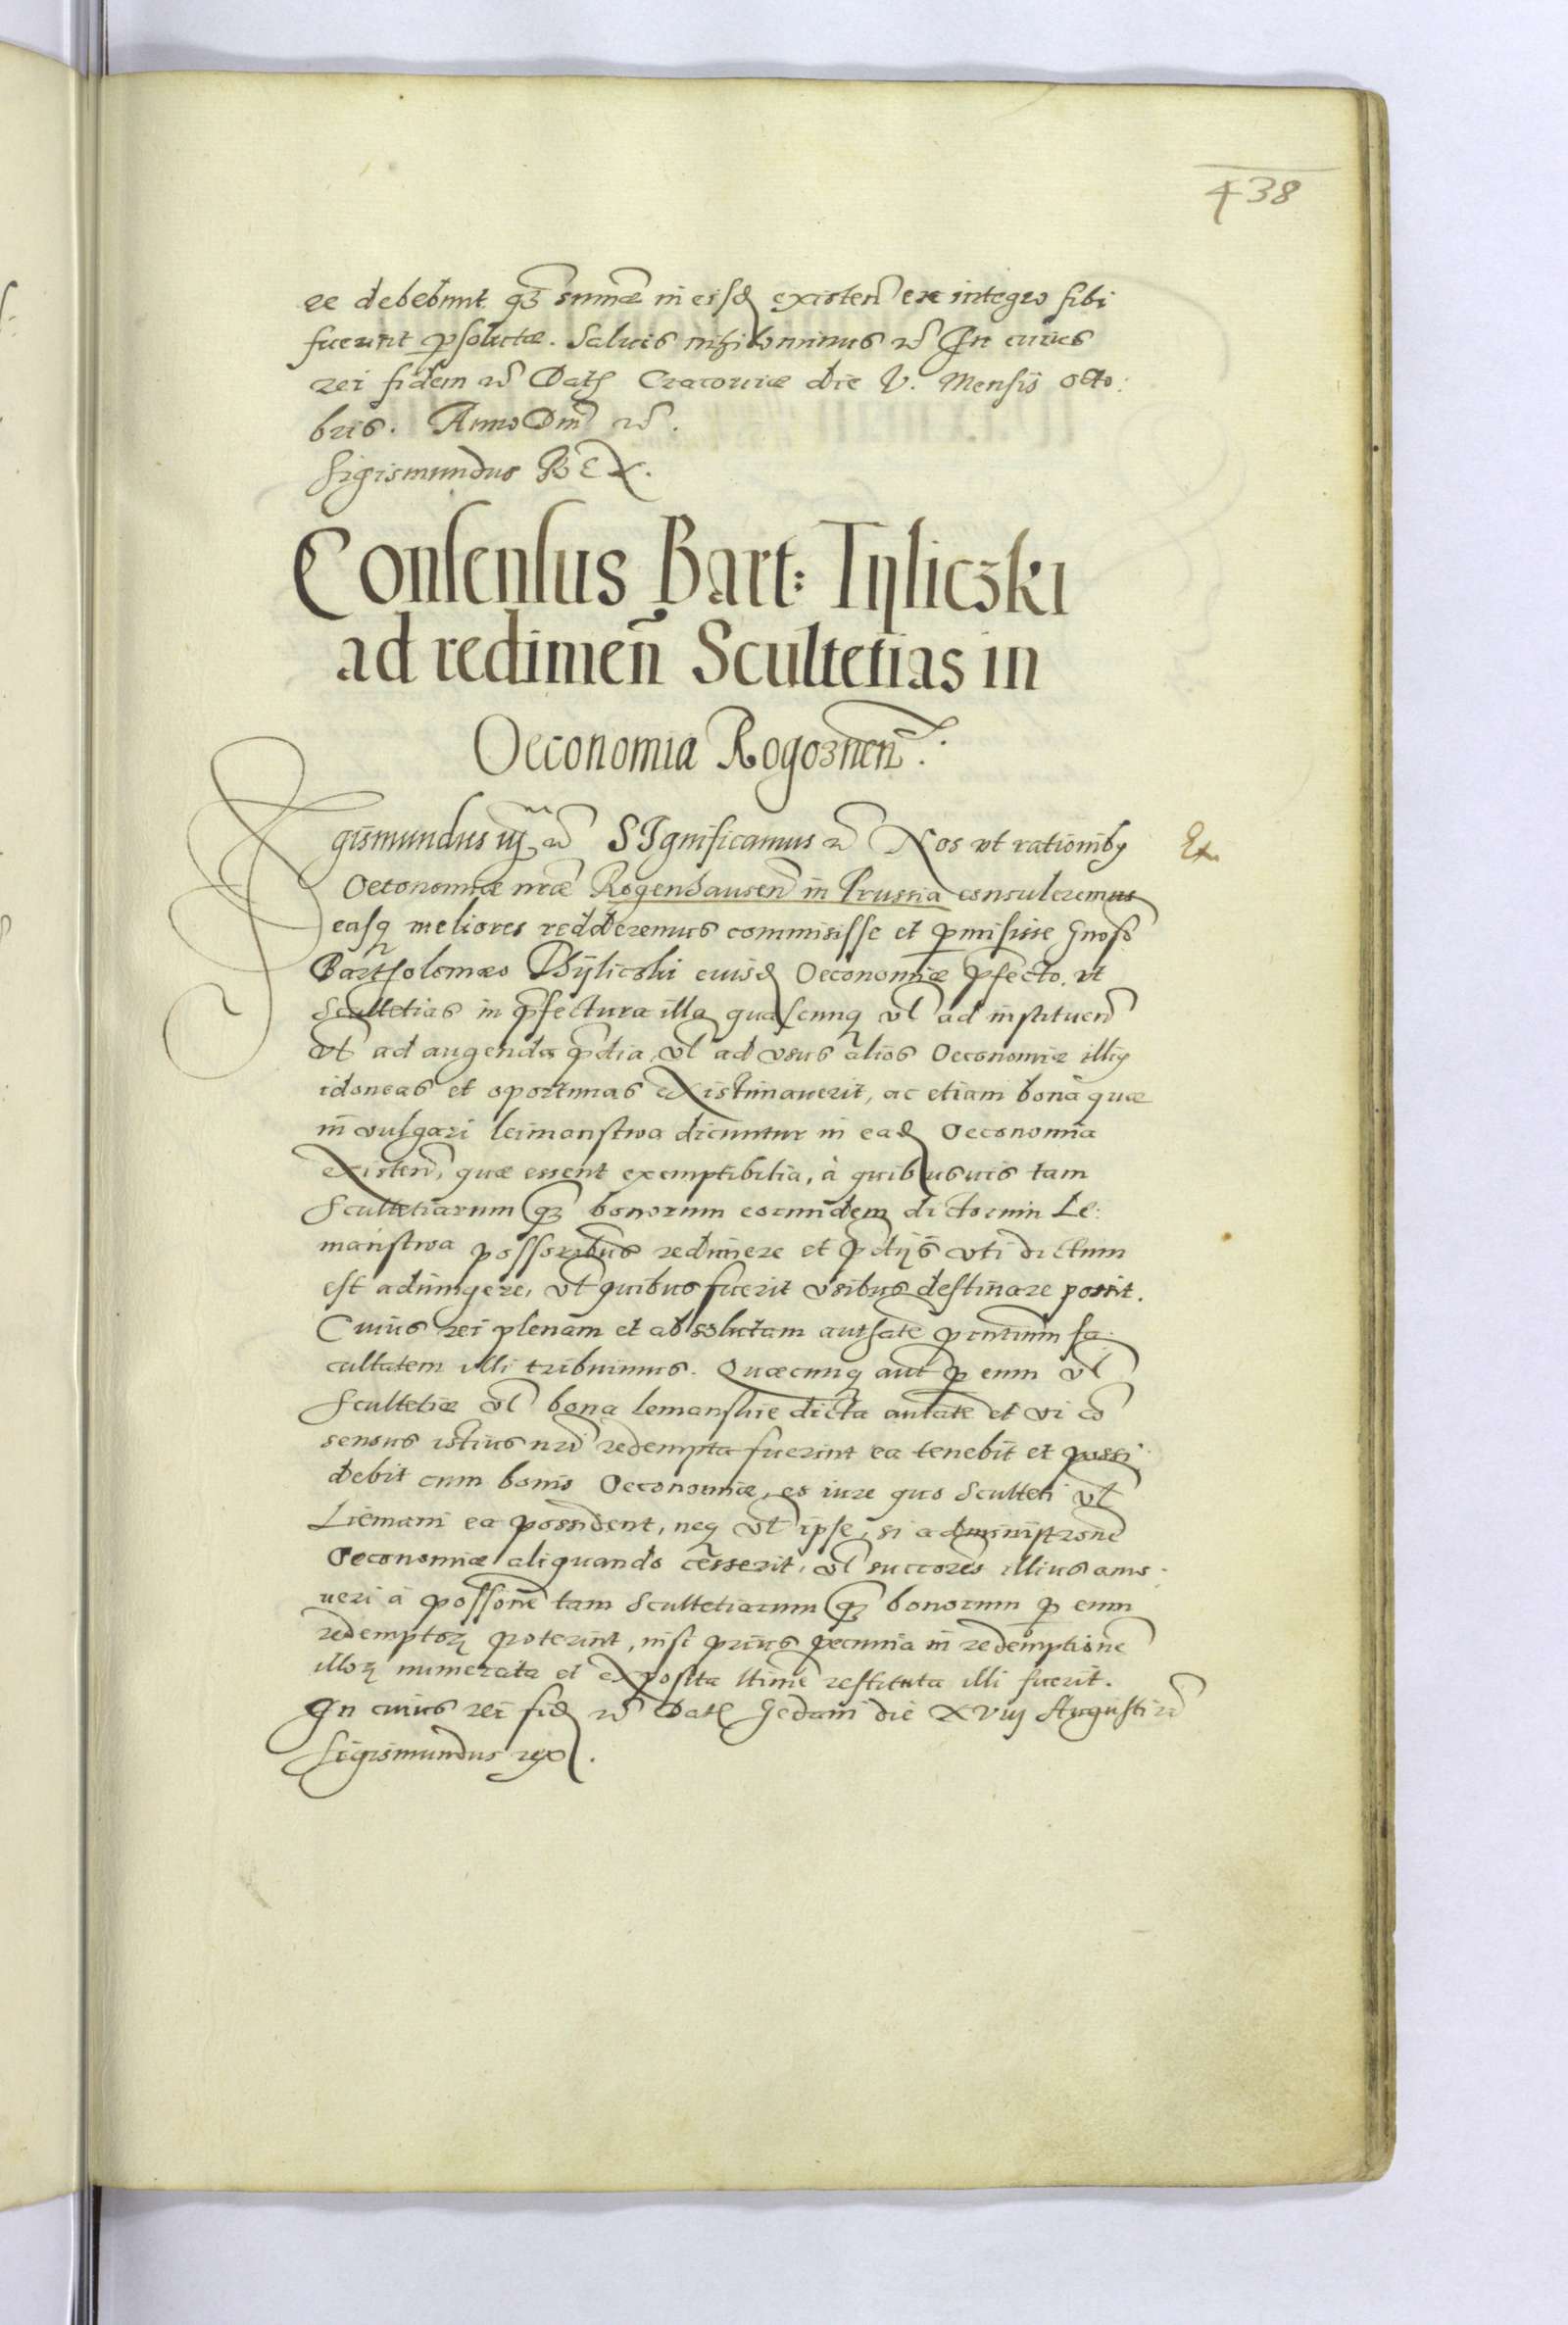 438
re debebunt qз̃ summæ in eisd existeñ ex integro sibi
fuerint ꝑsolutæ. Salvis nihilominus ꝛc̃ In cuius
rei fidem ꝛc̃ Dat Cracoviæ die V. Mensis Octo:
bris. Anno Dm̃ ꝛc̃.
Sigismundus REX.
Consensus Bart: Tyliczki
ad redimeñ Scultetias in
Oeconomia Rogoznen̄.
Sigismundus iij ꝛc̃ SIgnificamus ꝛc̃ Nos vt rationibꝯ
Oeconomiæ nr̃æ Rogenhausen̄ in Prussia consuleremus
easqꝫ meliores redderemus commisisse et ꝑmisisse Gnoso
Bartholomæo Thÿliczki eiusd Oeconomiæ p̃fecto, vt
Scultetias in p̃fectura illa quascunqꝫ vl̃ ad instituen̄
vl̃ ad augenda p̃dia, vl̃ ad vsus alios Oeconomiæ illiꝯ
idoneas et oportunas existimaverit, ac etiam bona quæ
in vulgari leimanstwa dicuntur in ead Oeconomia
existen̄, quæ essent exemptibilia, à quibusvis tam
Scultetiarum qз̃ bonorum eorundem dictorum Le:
manstwa possoribus redimere et p̃dijs vti dictum
est adiungere, vl̃ quibus fuerit vsibus destinare possit.
Cuius rei plenam et absolutam authate p̃ntium fa:
cultatem illi tribuimus. Quæcunqꝫ aut ꝑ eum vl̃
Scultetiæ vl̃ bona lemanskie dicta autate et vi cõ
sensus istius nr̃i redempta fuerint ea tenebit et possi
debit cum bonis Oeconomiæ, eo iure quo Sculteti vl̃
Liemani ea possident, neqꝫ vl̃ ipse, si administrone
Oeconomiæ aliquando cesserit, vl̃ succores illius amo:
veri à possone tam Scultetiarum qз̃ bonorum ꝑ eum
redemptoꝝ poterint, nisi prius pecunia in redemptione
illoꝝ numerata et exposita ltime restituta illi fuerit.
In cuius rei fid ꝛc̃ Dat Gedani die XViij Augusti ꝛc̃
Sigismundus rex.